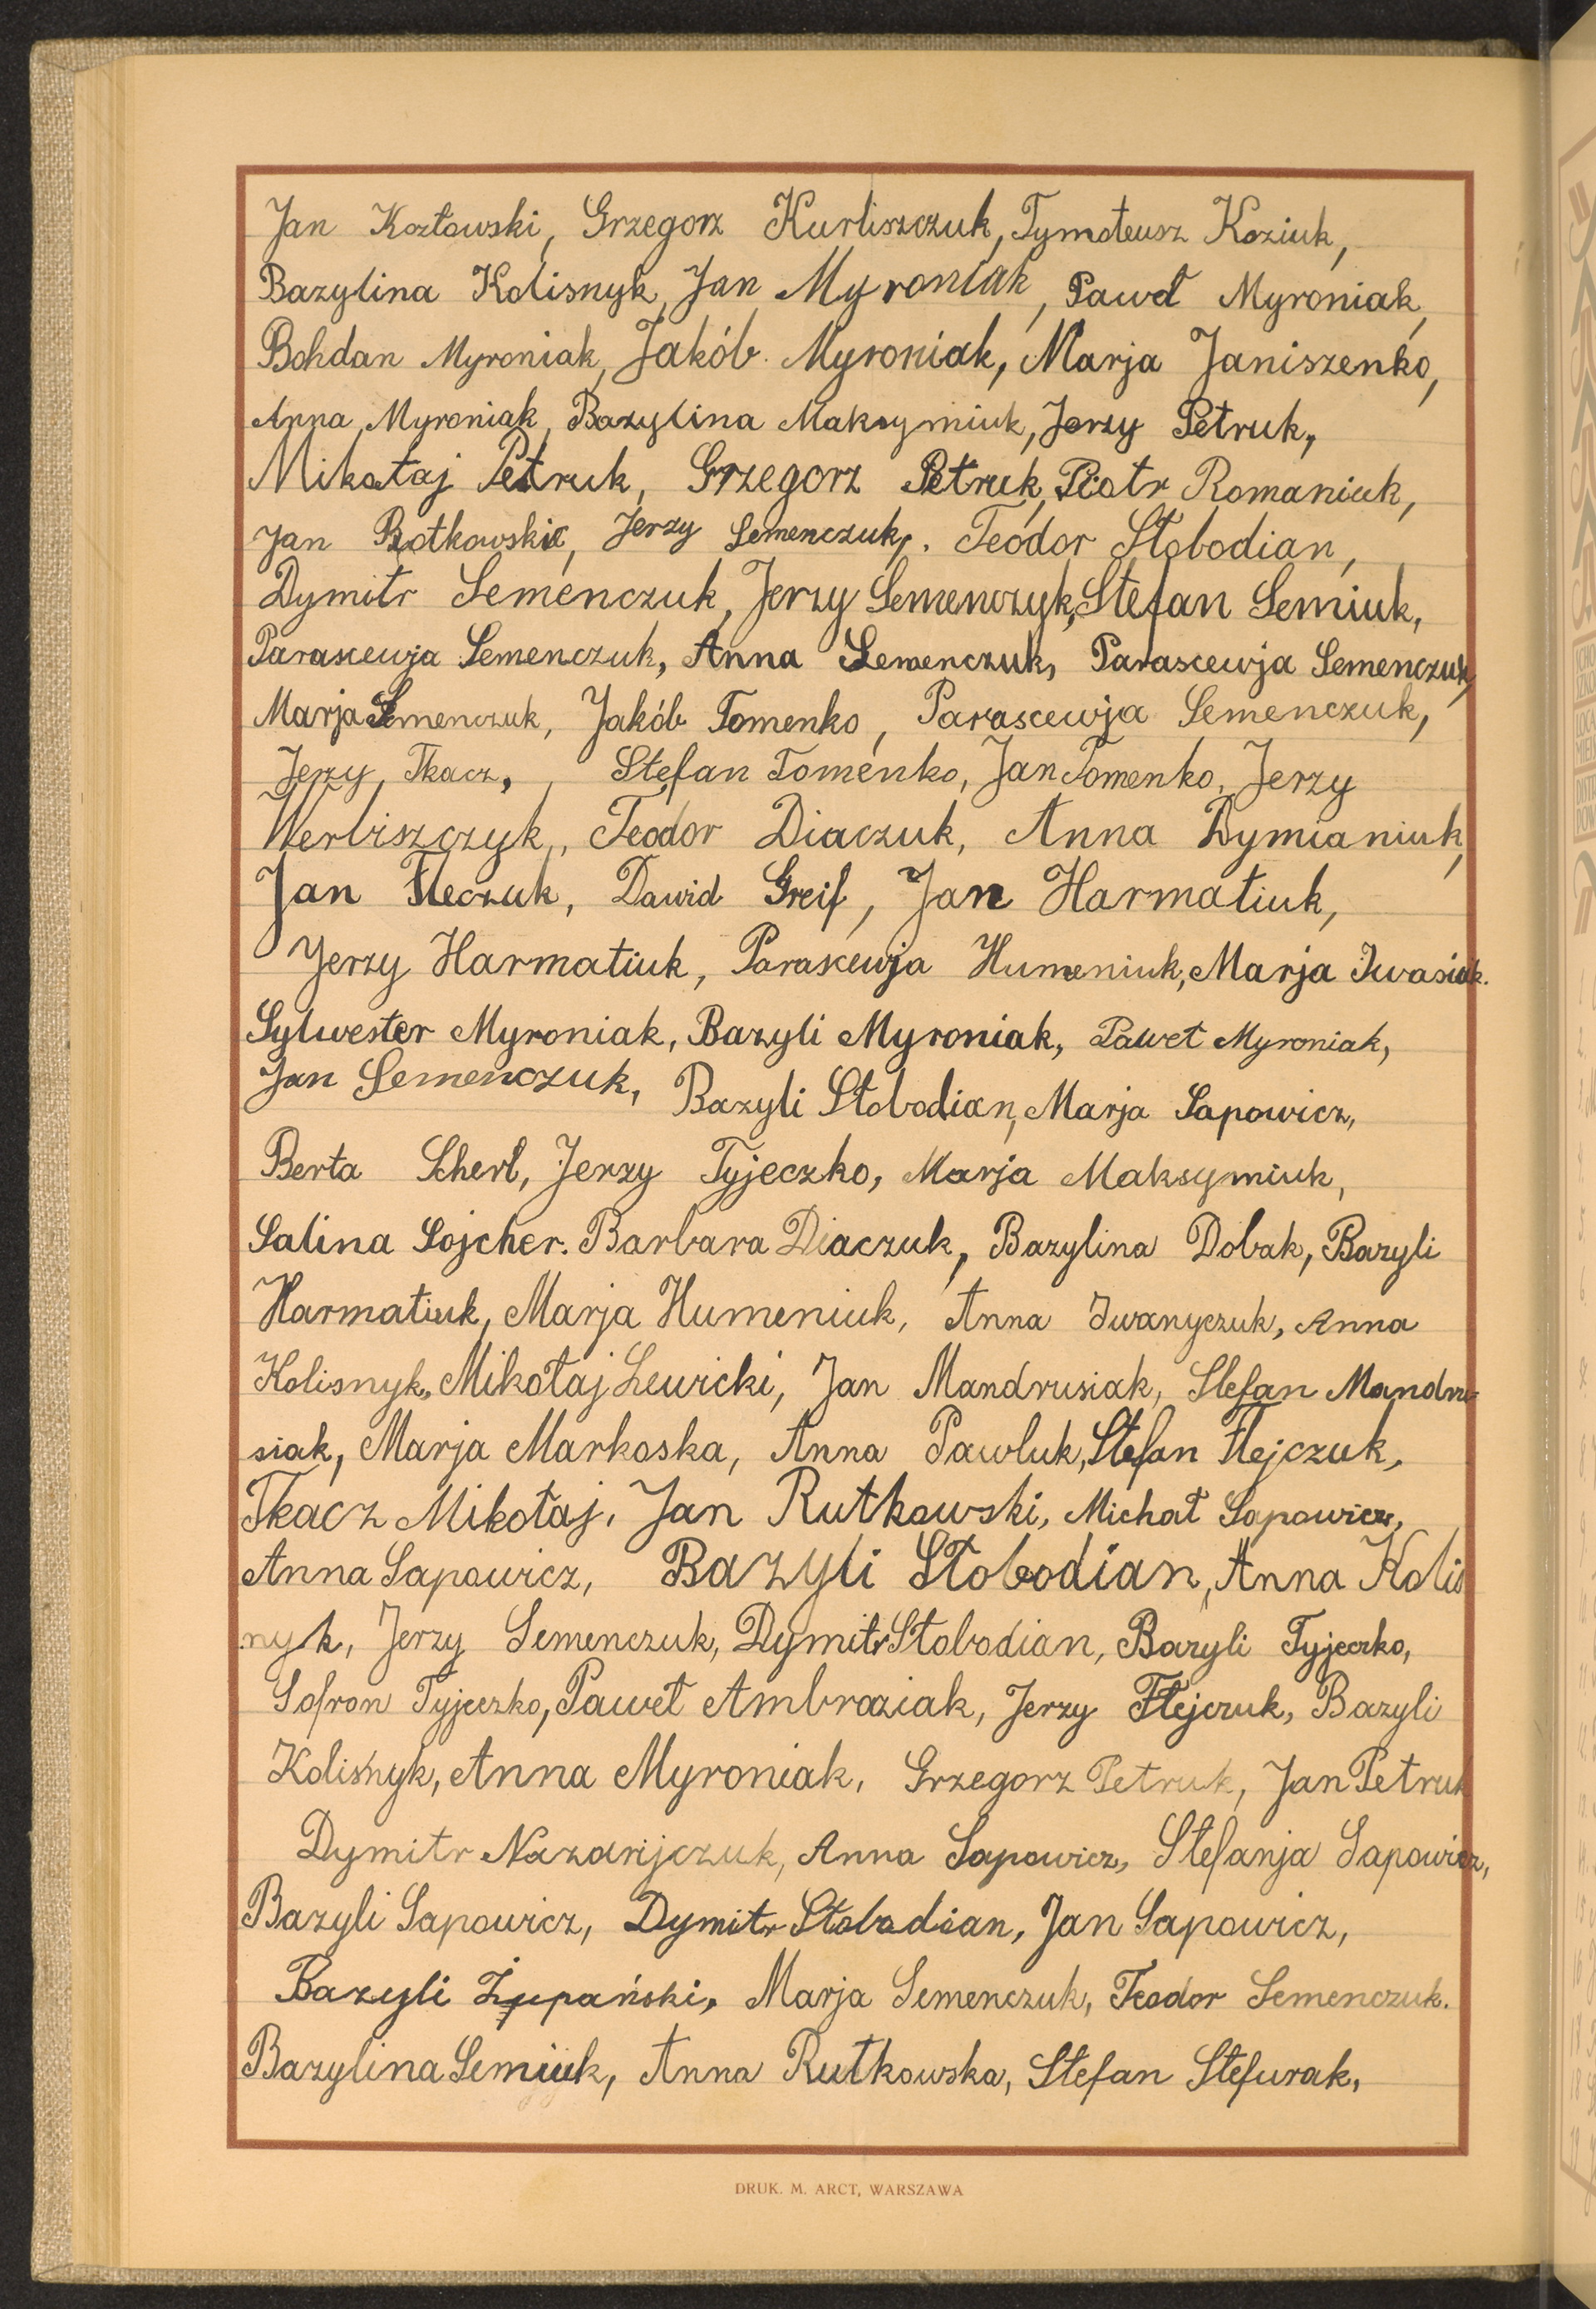 Jan Kozłowski, Grzegorz Kurliszczuk, Tymoteusz Koziuk,
Bazylina Kolisnyk, Jan Myroniak, Paweł Myroniak,
Bohdan Myroniak, Jakób Myroniak, Marja Janiszenko,
Anna Myroniak, Bazylina Maksymiuk, Jerzy Petruk,
Mikołaj Petruk, Grzegorz Petruk, Piotr Romaniuk,
Jan Jerzy Semenczuk, Teodor Słobodian,
Dymitr Semenczuk, Jerzy Semenczyk, Stefan Semiuk,
Parascewja Semenczuk, Anna Semenczuk, Parascewja Semenczuk,
Marja Semenczuk, Jakób Tomenko, Parascewja Semenczuk,
Jerzy Tkacz, Stefan Tomenko, Jan Tomenko, Jerzy
Werbiszczyk, Teodor Diaczuk, Anna Dymianiuk,
Jan Fleczuk, Dawid Greif, Jan Harmatiuk,
Jerzy Harmatiuk, Paraskewja Humeniuk, Marja Iwasiuk.
Sylwester Myroniak, Bazyli Myroniak, Paweł Myroniak,
Jan Semenczuk, Bazyli Słobodian, Marja Sapowicz,
Berta Scherl, Jerzy Tyjeczko, Marja Maksymiuk,
Salina Sojcher. Barbara Diaczuk, Bazylina Dobak, Bazyli
Harmatiuk, Marja Humeniuk, Anna Iwanyczuk, Anna
Kolisnyk, Mikołaj Lewicki, Jan Mandrusiak, Stefan Mandru-
siak, Marja Markoska, Anna Pawluk, Stefan Flejczuk,
Tkacz Mikołaj, Jan Rutkowski, Michał Sapowicz,
Anna Sapowicz, Bazyli Słobodian, Anna Kolis
nyk, Jerzy Semenczuk, Dymitr Słobodian, Bazyli Tyjeczko,
Sofron Tyjeczko, Paweł Ambroziak, Jerzy Flejczuk, Bazyli
Kolisnyk, Anna Myroniak, Grzegorz Petruk, Jan Petruk
Dymitr Nazarijczuk, Anna Sapowicz, Stefanja Sapowicz,
Bazyli Sapowicz, Dymitr Słobodian, Jan Sapowicz,
Bazyli Żupański, Marja Semenczuk, Teodor Semenczuk.
Bazylina Semiuk, Anna Rutkowska, Stefan Stefurak,
DRUK. M. ARCT, WARSZAWA